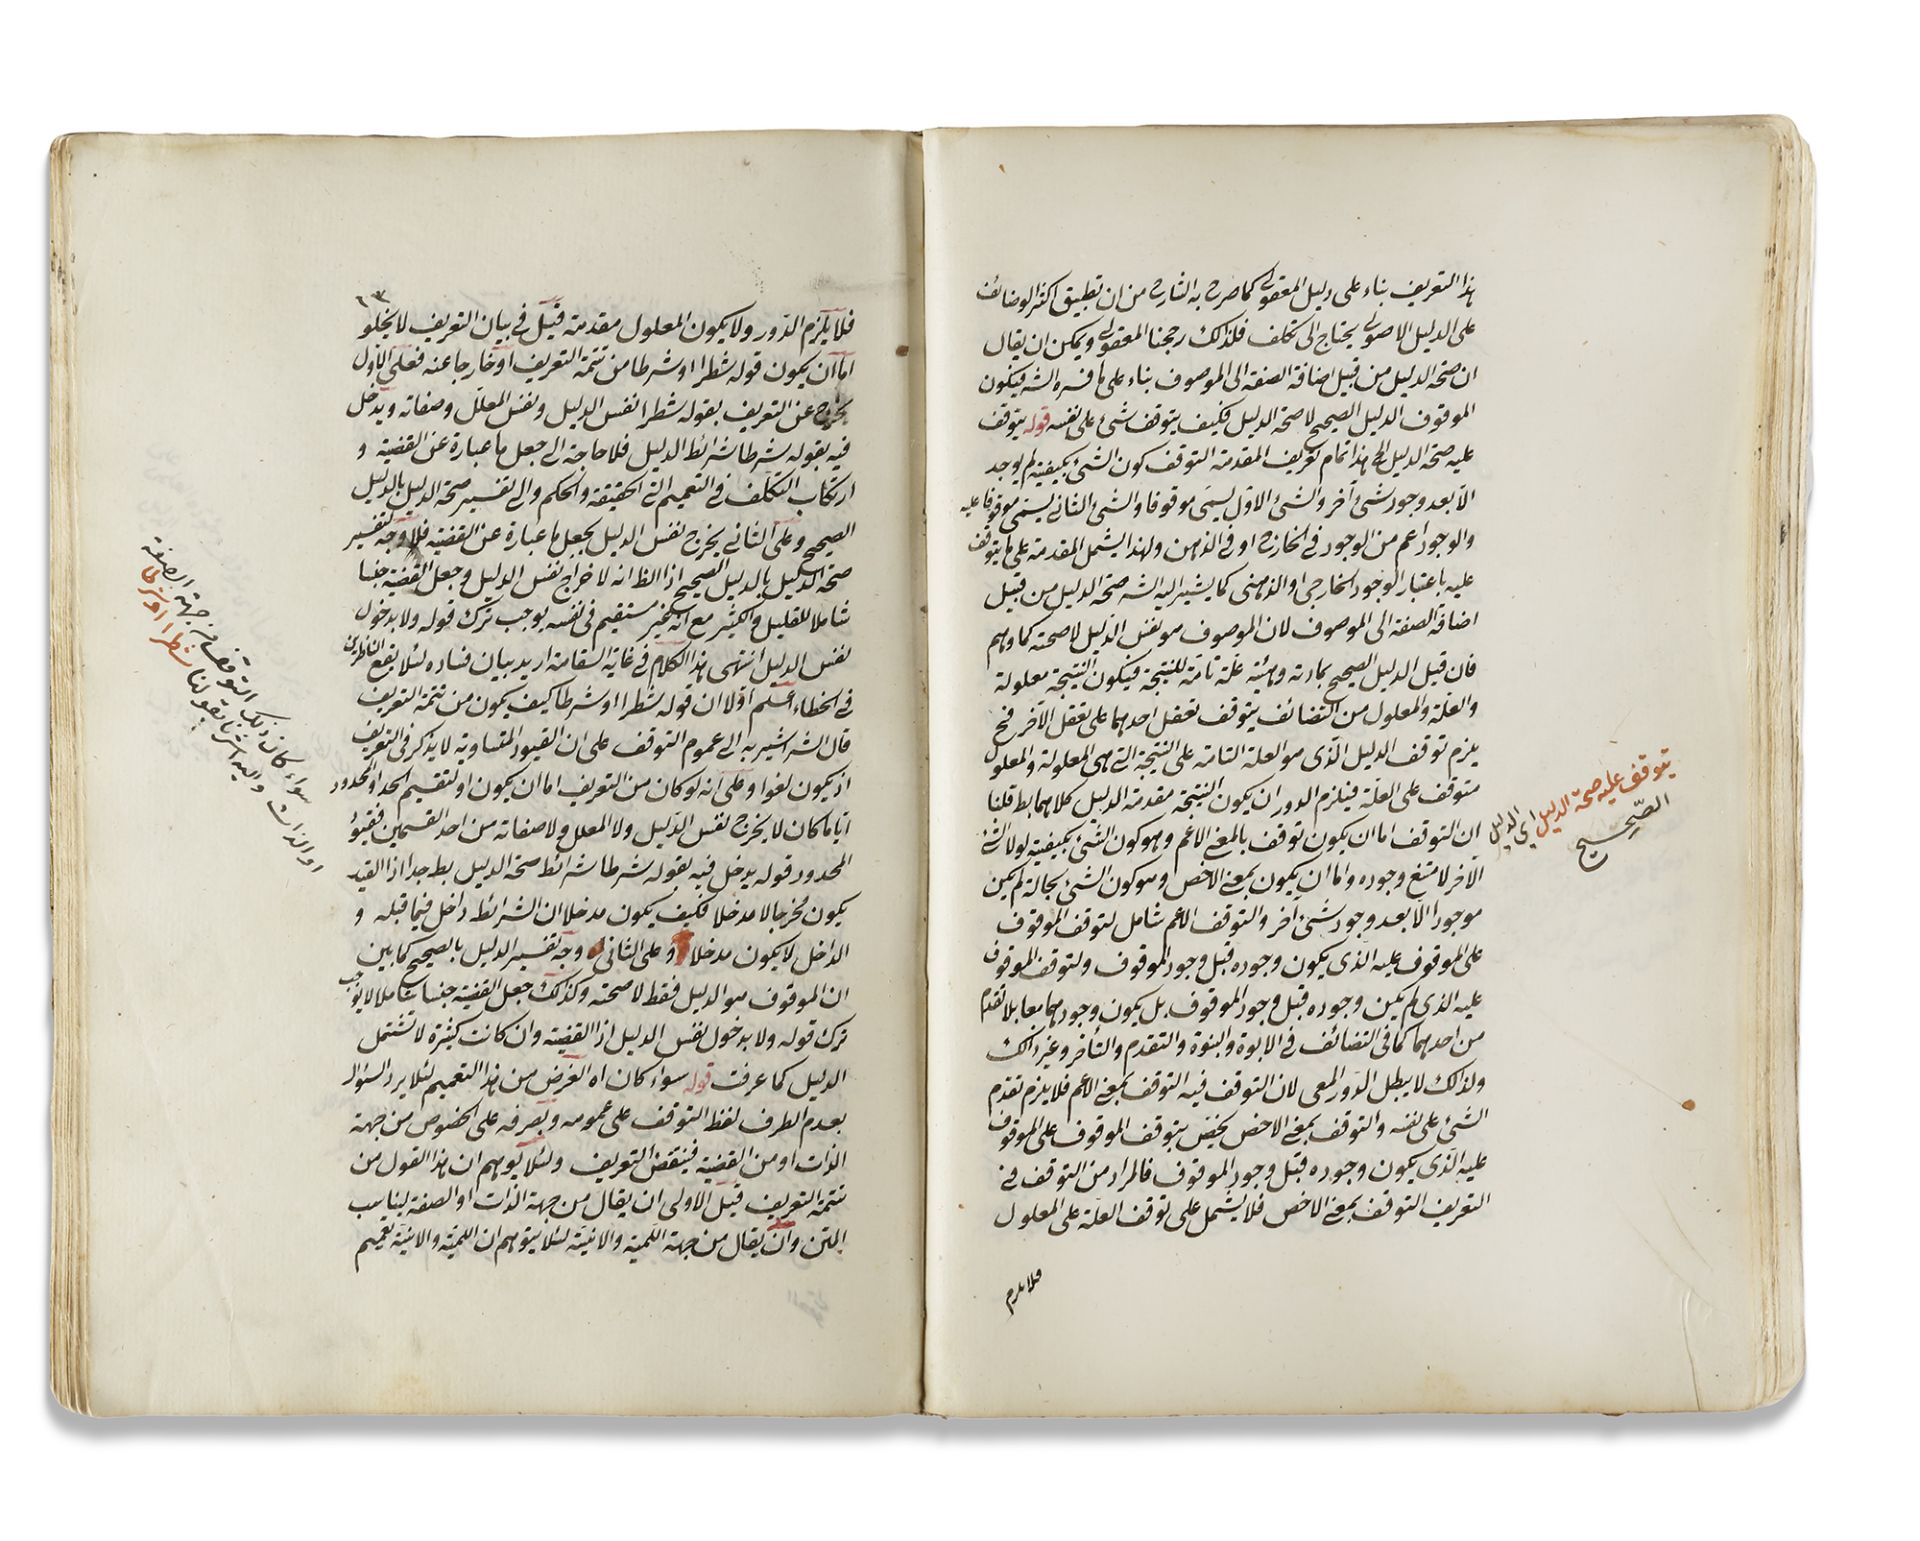 هذا التعريف بناء على دليل المعقولى كما صرح به الشارح من ان تطبيق اكثر الوضائف
على الدليل الاصولى يحتاج الى تكلف فلذلك رجحنا المعقولى ويمكن ان يقال
ان صحة الدليل من قبيل اضافة الصفة الى الموصوف بناء على ما فسره الشه فيكون
الموقوف الدليل الصحيح لا صحة الدليل فكيف يتوقف شئ على نفسه قوله يتوقف
عليه صحة الدليل الخ هذا تمام تعريف المقدمة التوقف كون الشئ بكيفية لم يوجد
الا بعد وجود شئ آخر والشئ الاول يسمى موقوفا والشئ الثانى يسمى موقوفا عليه
والوجود اعم من الوجود فى الخارج او فى الذهن ولهذا يشمل المقدمة على ما يتوقف
عليه باعتبار الوجود الخارجى او الذهنى كما يشير اليه الشه صحة الدليل من قبيل
اضافة الصفة الى الموصوف لان الموصوف هو نفس الدليل لا صحته كما وهم
فان قيل الدليل الصحيح بمادته وهيئة علة تامة للنتيجة فيكون النتيجة معلولة
والعلة والمعلول من التضائف يتوقف تعقل احدهما على تعقل الآخر فح
يلزم توقف الدليل الذى هو العلة التامة على النتيجة التى هى المعلولة والمعلول
متوقف على العلة فيلزم الدور ان يكون النتيجة مقدمة الدليل كلاهما بط قلنا
ان التوقف اما ان يكون توقف بالمعنى الاعم وهو كون الشئ بكيفية لولا الشئ
الآخر لامتنع وجوده واما ان يكون بمعنى الاخص وهو كون الشئ بحالة لم يكن
موجودا الا بعد وجود شئ آخر والتوقف الاعم شامل لتوقف الموقوف
على الموقوف عليه الذى يكون وجوده قبل وجود الموقوف ولتوقف الموقوف
عليه الذى لم يكن وجوده قبل وجود الموقوف بل يكون وجودهما معا بلا تقدم
من احدهما كما فى التضائف فى الابوة والبنوة والتقدم والتأخر وغير ذلك
ولذلك لا يبطل الدور المعى لان التوقف فيه التوقف بمعنى الاعم فلا يلزم تقدم
الشئ على نفسه والتوقف بمعنى الاخص يختص بتوقف الموقوف على الموقوف
عليه الذى يكون وجوده قبل وجود الموقوف فالمراد من التوقف فى
التعريف التوقف بمعنى الاخص فلا يشمل على توقف العلة على المعلول
فلا يلزم
يتوقف عليه صحة الدليل اى الدليل
الصحيح
٦٣
فلا يلزم الدور ولا يكون المعلول مقدمة قيل فى بيان التعريف لا يخلو
اما ان يكون قوله شطرا او شرطا من تتمة التعريف او خارجا عنه فعلى الاول
يخرج عن التعريف بقوله شطرا نفس الدليل ونفس المعلل وصفاته ويدخل
فيه بقوله شرطا شرائط الدليل فلا حاجة الى جعل ما عبارة عن القضية و
ارتكاب التكلف فى التعميم الى الحقيقة والحكم والى تفسير صحة الدليل بالدليل
الصحيح وعلى الثانى يخرج نفس الدليل بجعل ما عبارة عن القضية فلا وجه لتفسير
صحة الدليل بالدليل الصحيح اذا الظ انه لاخراج نفس الدليل وجعل القضية جنسا
شاملا للقليل والكثير مع انه غير مستقيم فى نفسه يوجب ترك قوله ولا بدخول
نفس الدليل انتهى هذا الكلام فى غاية السقامة اريد بيان فساده لئلا يقع الناظرين
فى الخطاء اعلم اولا ان قوله شطرا او شرطا كيف يكون من تتمة التعريف
قال الشه اشير به الى عموم التوقف على ان القيود المتساوية لا يذكر فى التعريف
اذ يكون لغوا وعلى انه لو كان من التعريف اما ان يكون او لتقسيم الحد او المحدود
اياما كان لا يخرج نفس الدليل ولا المعلل ولا صفاته من احد القسمين فقيود
المحدود قوله يدخل فيه بقوله شرطا شرائط صحة الدليل بط جدا اذا القيد
يكون مخرجا لا مدخلا فكيف يكون مدخلا ان الشرائط داخل فيما قبله و
الداخل لا يكون مدخلا وعلى الثانى وجه تفسير الدليل بالصحيح كما بين
ان الموقوف هو الدليل فقط لا صحته وكذلك جعل القضية جنسا شاملا لا يوجب
ترك قوله ولا بدخول نفس الدليل اذا القضية وان كانت كثيرة لا تشتمل
الدليل كما عرفت قوله سواء كان اه الغرض من هذا التعميم لئلا يرد السؤال
بعدم الطرف لفظ التوقف على عمومه وبصرفه على الخصوص من جهة
الذات او من القضية فينقض التعريف ولئلا يوهم ان هذا القول من
تتمة التعريف قيل الاولى ان يقال من جهة الذات او الصفة ليناسب
المتن وان يقال من جهة اللمية والانية لئلا يتوهم ان اللمية والانية تعميم
سواء كان ذلك التوقف من جهة الصفة
او الذات واليه اشرنا بقولنا شطرا او شرطا